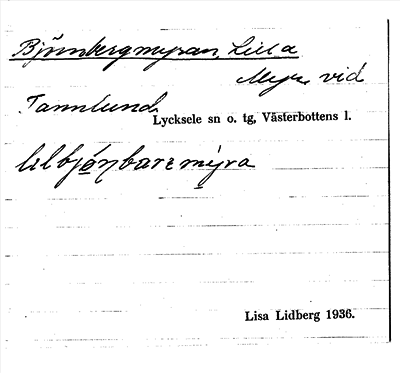 Björnbergmyran, Lilla
Myr vid
Tannlund
Lycksele sn o. tg, Västerbottens l.
Lisa Lidberg 1936.